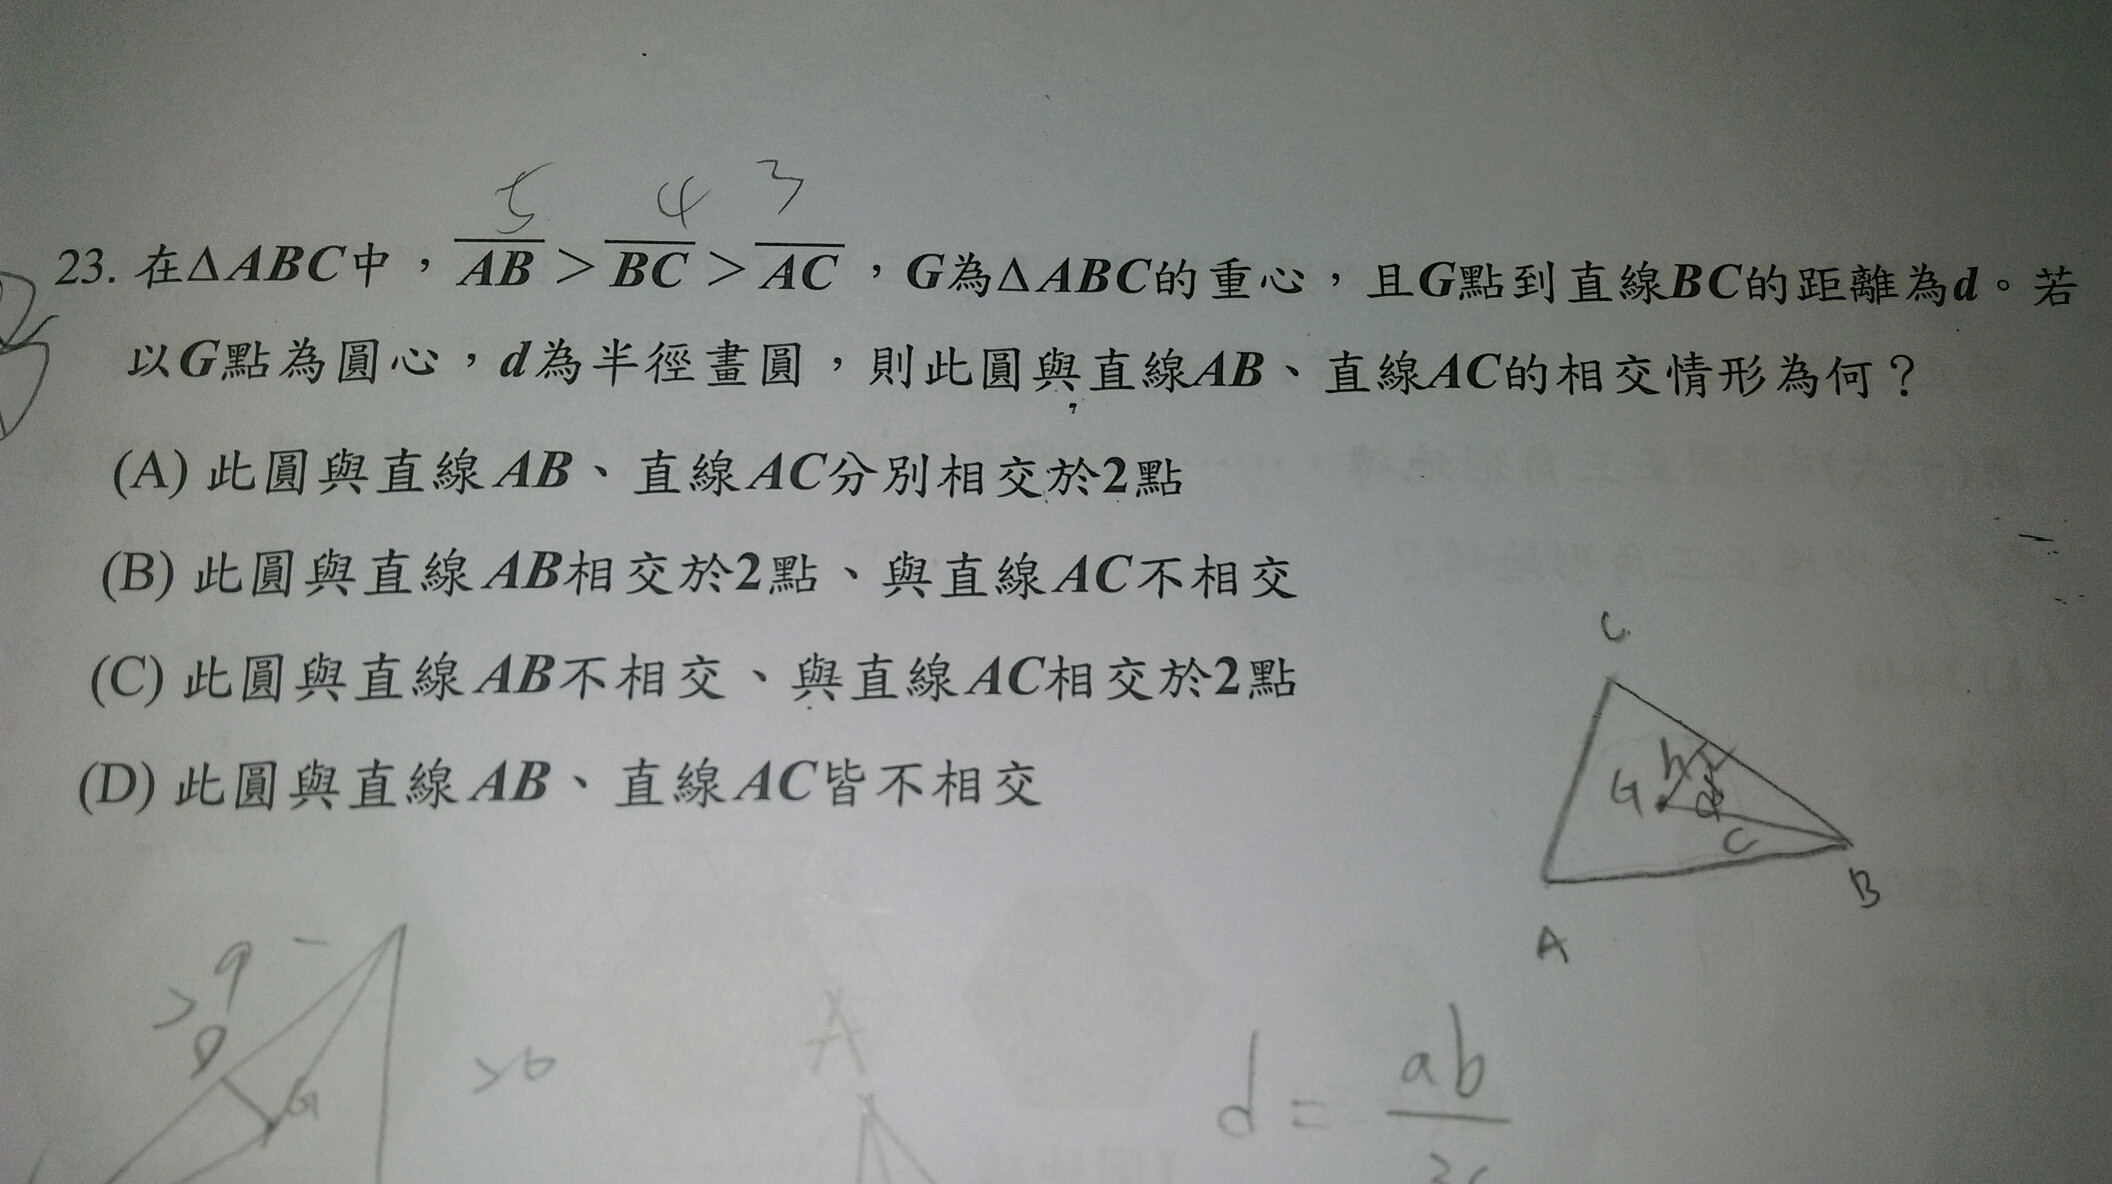 5 4 3
23. 在△ABC中，AB＞BC＞AC，G為△ABC的重心，且G點到直線BC的距離為d。若
以G點為圓心，d為半徑畫圓，則此圓與直線AB、直線AC的相交情形為何？
(A) 此圓與直線AB、直線AC分別相交於2點
(B) 此圓與直線AB相交於2點、與直線AC不相交
(C) 此圓與直線AB不相交、與直線AC相交於2點
(D) 此圓與直線AB、直線AC皆不相交
C
h
G d
C
B
A
G
A
d = ab